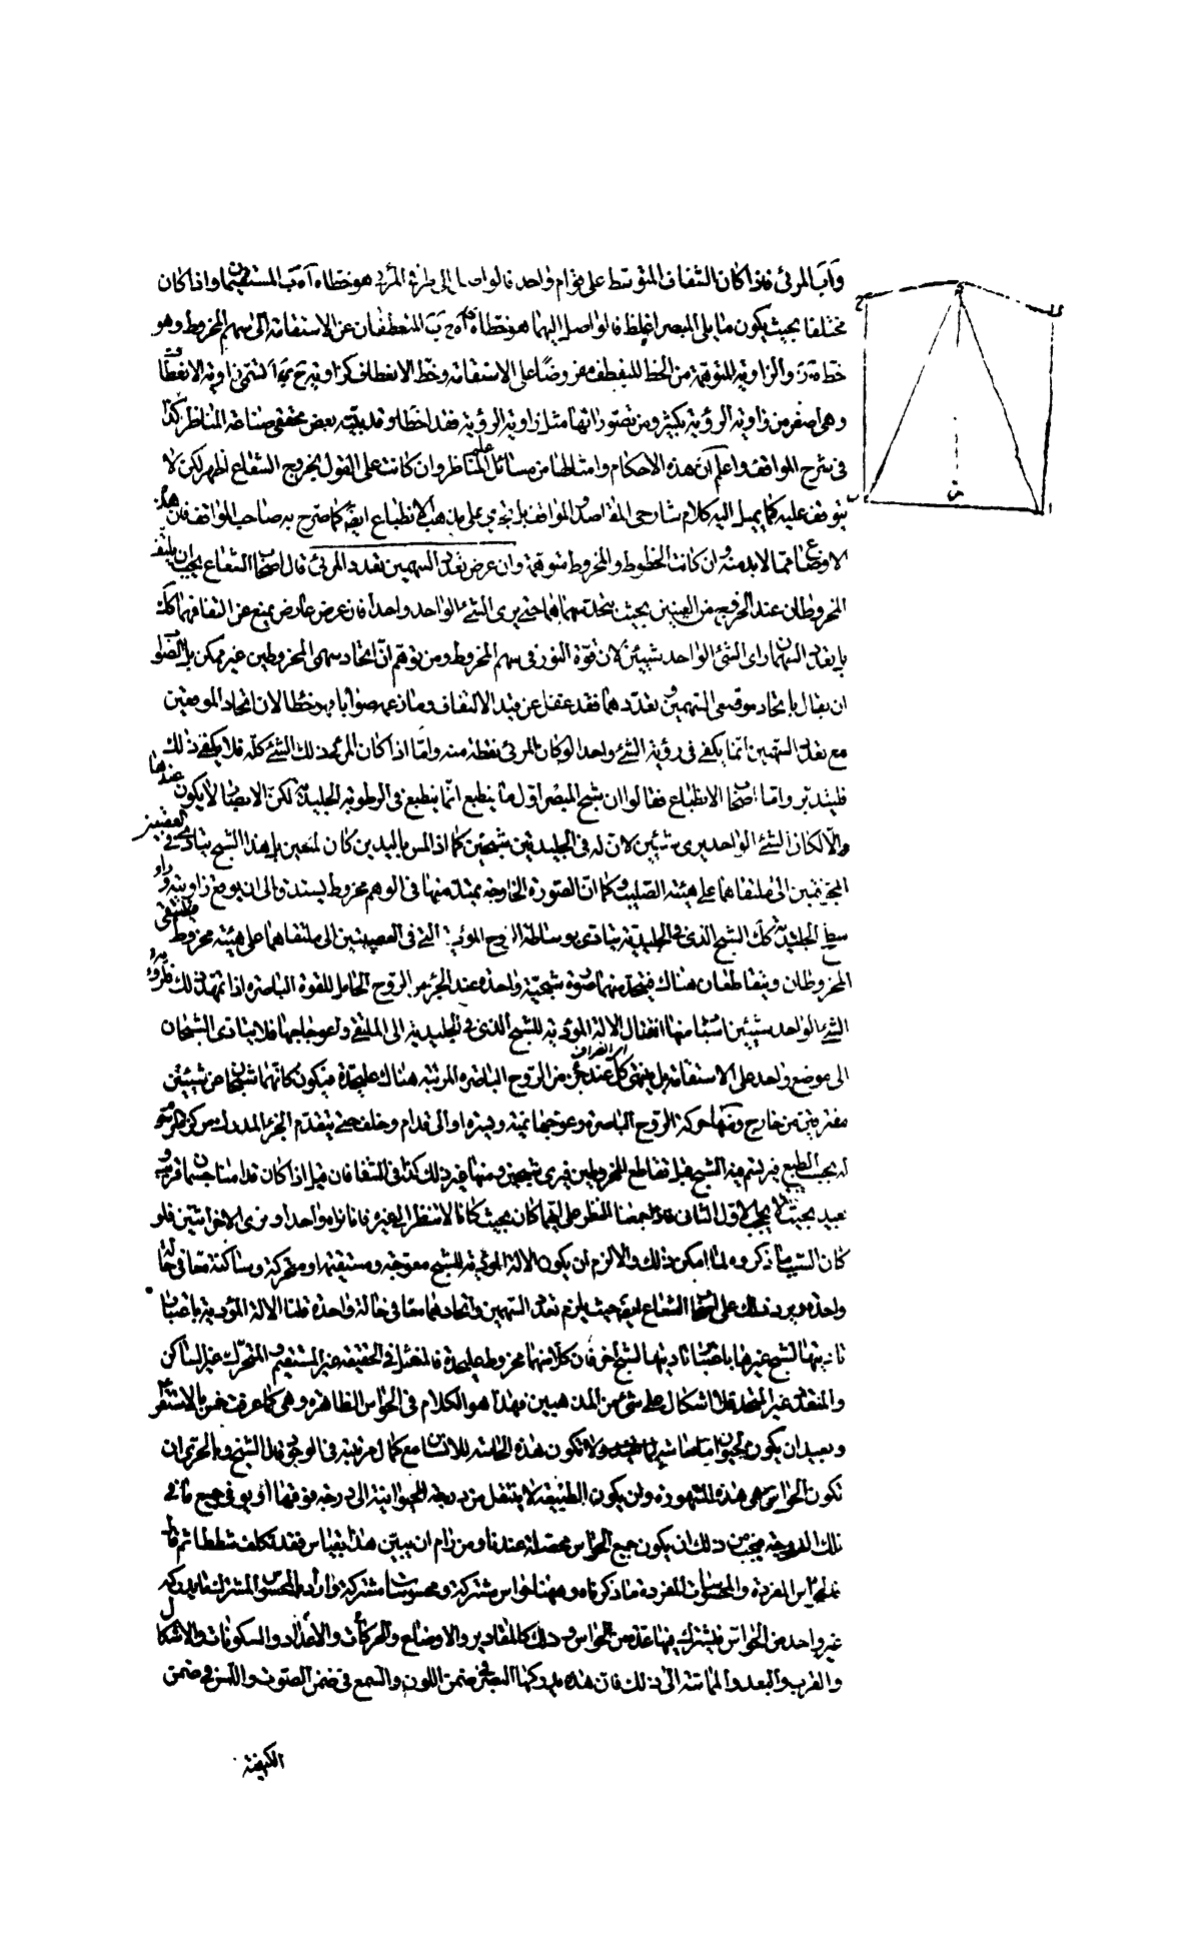 وآب المرئى فاذا كان الشفاف المتوسط على قوام واحد فالواصل الى طرفى المرئى هو خطاه آه ب المستقيمان واذا كان
مختلفا بحيث يكون ما يلى المبصر اغلظ فالواصل اليهما هو خطاه ب المنعطفان عن الاستقامة الى سهم المخروط وهو
خط والزاوية المتوهمة من الخط المنعطف مفروضا على الاستقامة وخط الانعطاف كزاوية تسمى زاوية الانعطاف
وهى اصغر من زاوية الرؤية بكثير ومن تصور انها مثل زاوية الرؤية فقد اخطا وقد بينه بعض محققى صناعة المناظر كذا
فى شرح المواقف واعلم ان هذه الاحكام وامثالها من مسائل علم المناظر وان كانت على القول بخروج الشعاع اظهر لكن لا
يتوقف عليه كما يميل اليه كلام شارحى المقاصد والمواقف بل يجرى على مذهب الانطباع ايضا كما صرح به صاحب المواقف فان هذه
الاوضاع مما لا بد منه وان كانت الخطوط والمخروط متوهمة وان عرض تعدد السهمين تعدد المرئى قال اصحاب الشعاع يجب ان يلتف
المخروطان عند الخروج من العينين بحيث يتحد سهماهما حتى يرى الشئ الواحد واحدا فان عرض عارض يمنع عن التفافهما كذلك
بل تعدد السهمان راى الشئ الواحد شيئين لان قوة النور فى سهم المخروط ومن توهم ان اتحاد سهمى المخروطين غير ممكن بل الصواب
ان يقال باتحاد موقعى السهمين وتعددهما فقد غفل عن قيد الالتفاف وما زعمه صوابا فهو خطا لان اتحاد الموقعين
مع تعدد السهمين انما يكفى فى رؤية الشئ واحدا لو كان المرئى نقطة منه واما اذا كان المرئى ذلك الشئ كله فلا يكفى ذلك
فليتدبر واما اصحاب الانطباع فقالوا ان شبح المبصر اول ما ينطبع انما ينطبع فى الرطوبة الجليدية لكن الابصار لا يكون عندها
والا لكان الشئ الواحد يرى شيئين لان له فى الجليديتين شبحين كما اذا لمس باليدين كان لمسين بل هذا الشبح يتادى فى العصبتين
المجوفتين الى ملتقاهما على هيئة الصليب وكما ان الصورة الخارجة يمتد منها فى الوهم مخروط يستدق الى ان يوقع زاويته وراء
سطح الجليدية كذلك الشبح الذى فى الجليدية يتادى بوساطة الروح المؤدية التى فى العصبتين الى ملتقاهما على هيئة مخروط فيلتقى
المخروطان ويتقاطعان هناك فيتحد منهما صورة شبحية واحدة عند الجزء من الروح الحامل للقوة الباصرة اذا تمهد ذلك فلرؤية
الشئ الواحد شيئين اسباب منها انفتال الالة المؤدية للشبح الذى فى الجليدية الى الملتقى واعوجاجها فلا يتادى الشبحان
الى موضع واحد على الاستقامة بل ينتهى كل عند جزء من الروح الباصرة المرتبة هناك على حدة فيكون كانهما شبحان عن شيئين
مفترقين من خارج ومنها حركة الروح الباصرة وتموجها يمنة ويسرة او الى قدام وخلف حتى يتقدم الجزء المدرك مركزه المرسوم
له بحسب الطبع فيرتسم فيه الشبح قبل تقاطع المخروطين فيرى شبحين ومنها غير ذلك كذا فى الشفا فان قيل اذا كان قدامنا جسمان قريب و
بعيد بحيث لا يحجب الاول الثانى فاذا جمعنا النظر على ايهما كان بحيث كانا لا ننظر الى غيره فانا نراه واحدا ونرى الاخر اثنين فلو
كان السبب ما ذكروه لما امكن ذلك والا لزم ان يكون الالة المؤدية للشبح معوجة ومستقيمة او متحركة وساكنة معا فى حالة
واحدة ويرد ذلك على اصحاب الشعاع ايضا حيث يلزم تعدد السهمين واتحادهما معا فى حالة واحدة قلنا الالة المؤدية باعتبار
تاديتها لشبح غيرها باعتبار تاديتها لشبح اخر فان كلا منهما مخروط على حدة فالمنفتل فى الحقيقة غير المستقيم والمتحرك غير الساكن
والمتعدد غير المتحد فلا اشكال على شئ من المذهبين فهذا هو الكلام فى الحواس الظاهرة وهى كما عرفت خمس بالاستقراء
وبعيد ان يكون لحيوان اخر حاسة ولا تكون هذه الحاسة للانسان مع كمال مرتبته فى الوجود قال الشيخ وبالحرى ان
تكون الحواس هى هذه المشهورة وان يكون الطبيعة لا ينتقل من درجة الحيوانية الى درجة فوقها او يوفى جميع ما فى
تلك الدرجة فيجب من ذلك ان يكون جميع الحواس محصلة عندنا ومن رام ان يبين هذا بقياس فقد تكلف شططا ثم قال
فالحواس المفردة والمحسوسات المفردة ما ذكرناه وههنا حواس مشتركة ومحسوسات مشتركة واراد بالمحسوس المشترك ما يدركه
غير واحد من الحواس فيشترك فيها عدة من الحواس وذلك كالمقادير والاوضاع والحركات والاعداد والسكونات والاشكال
والقرب والبعد والمماسة الى ذلك فان هذه يدركها البصر فى ضمن اللون والسمع فى ضمن الصوت واللمس فى ضمن
الكيفية